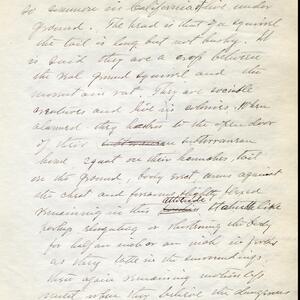 so common in California live under
ground. The head is that of a squirrel
the tail is long but not bushy. It
is said they are a cross between
the real ground squirrel and the
mountain rat. They are sociable
creatures and live in colonies. When
alarmed they hasten to the open door
of their subterranean
home squat on their haunches, tail
on the ground, body erect arms against
the chest and forearms slightly
remaining in this attitude statue like
perhaps elongating or shortening the body
for half an inch or an inch or
as they take in the surroundings.
then again remaining motionless
until when they believe the dangerous